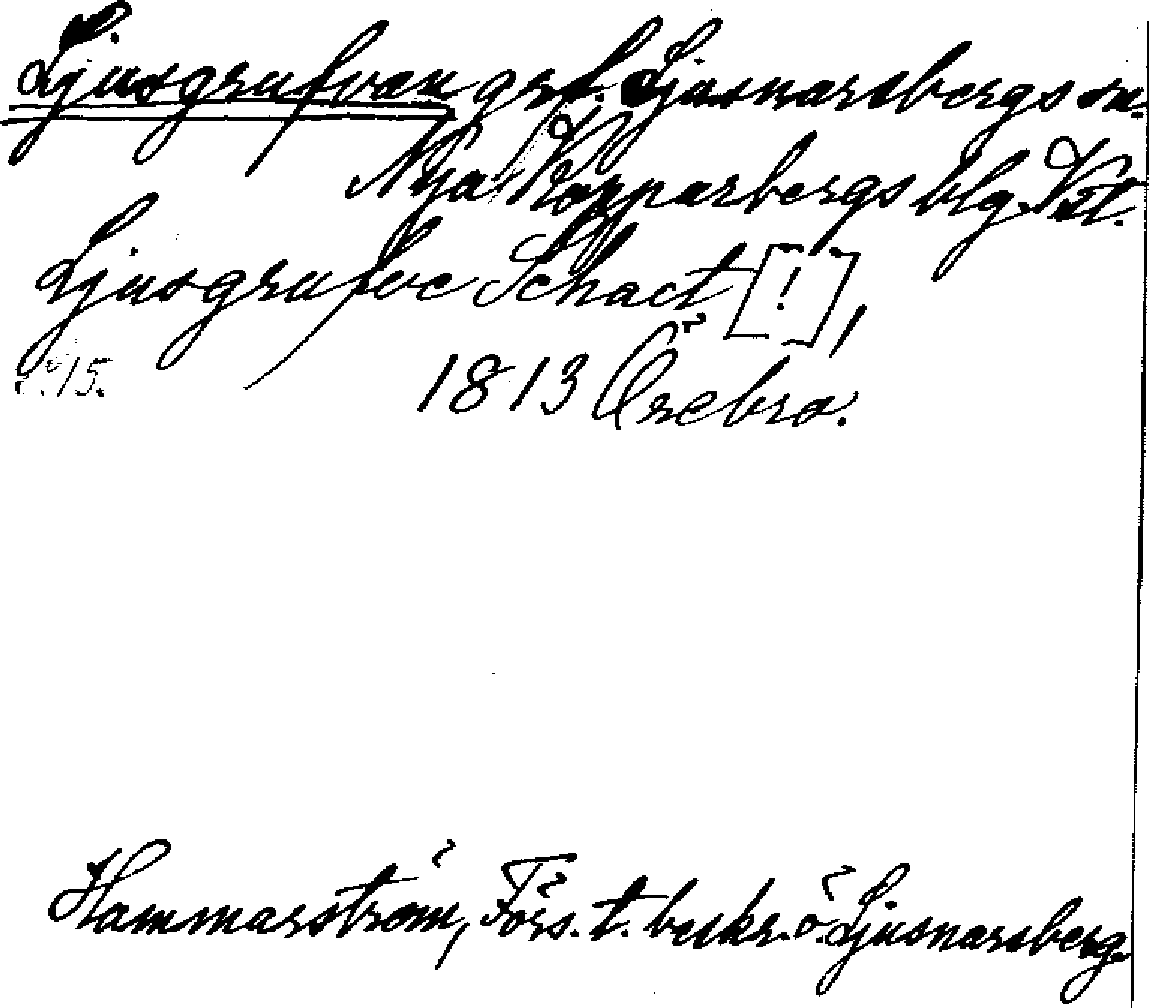 Ljusgrufvan grf. Ljusnarsbergs sn.
Nya Kopparbergs blg. Vstl.
Ljusgrufve Schact [!],
s. 15. 1813 Örebro.
Hammarström, Förs. t. beskr. ö. Ljusnarsberg.